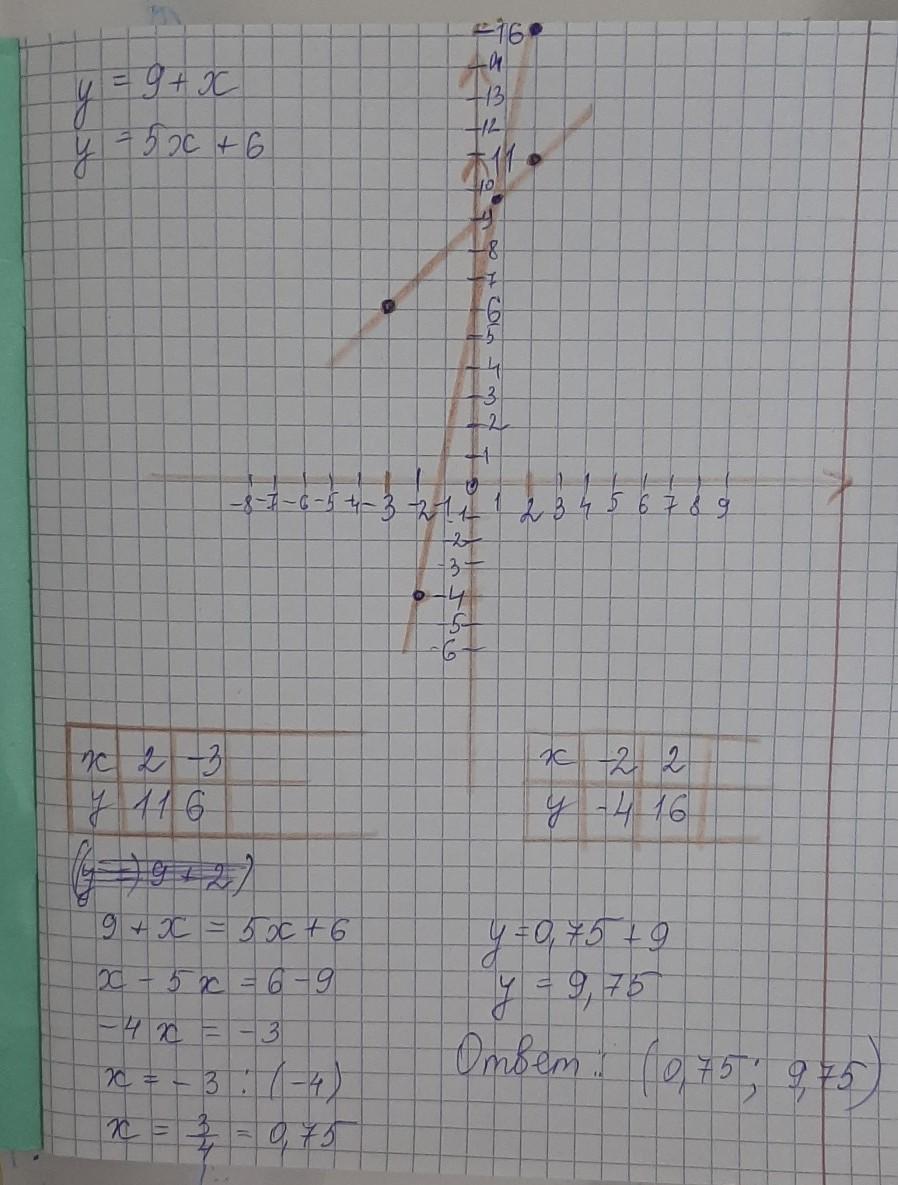 y = 9 + x
y = 5x + 6
16
14
13
12
11
10
9
8
7
6
5
4
3
2
1
-8 -7 -6 -5 -4 -3 -2 -1 0 1 2 3 4 5 6 7 8 9
1
-2
-3
-4
-5
-6
x 2 -3
y 11 6
x -2 2
y -4 16
(y = 9 + 2)
9 + x = 5x + 6
x - 5x = 6 - 9
-4x = -3
x = -3 : (-4)
x = 3/4 = 0,75
y = 0,75 + 9
y = 9,75
Ответ: (0,75; 9,75)